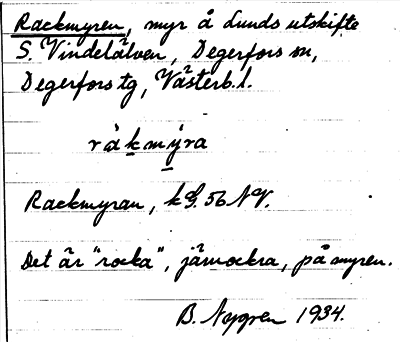 Rackmyren, myr å Lunds utskifte
S. Vindelälven, Degerfors sn,
Degerfors tg, Västerb. l.
råkmỳra
Rackmyran, kG. 56 NV.
Det är "rocka", järnockra, på myren.
B. Nygren 1934.